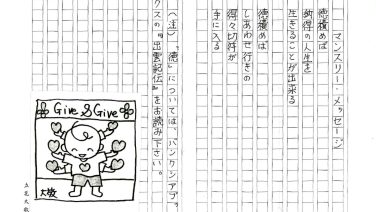 マンスリー・メッセージ
徳積めば
納得の人生を
生きることが出来る
徳積めば
しあわせ行きの
得々切符が
手に入る
(注)「徳」については、バンクシアブッ
クスの『出雲記伝』をお読み下さい。
Give & Give
大敬
立花大敬